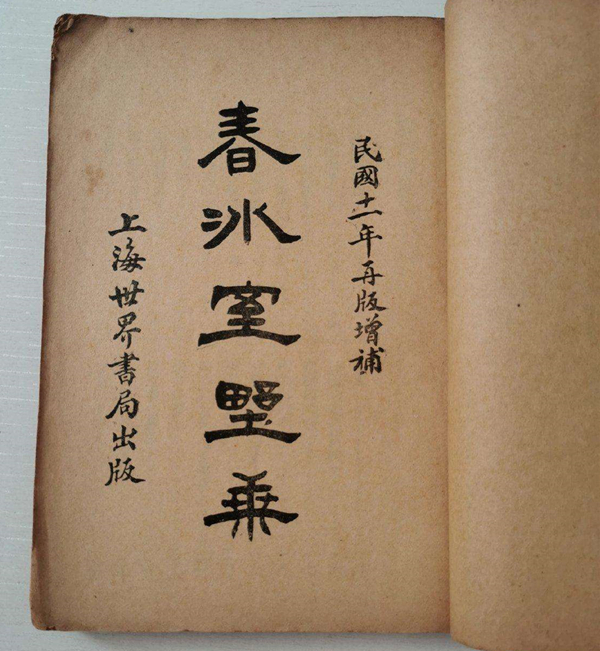 民國十一年再版增補
春冰室野乗
上海世界書局出版